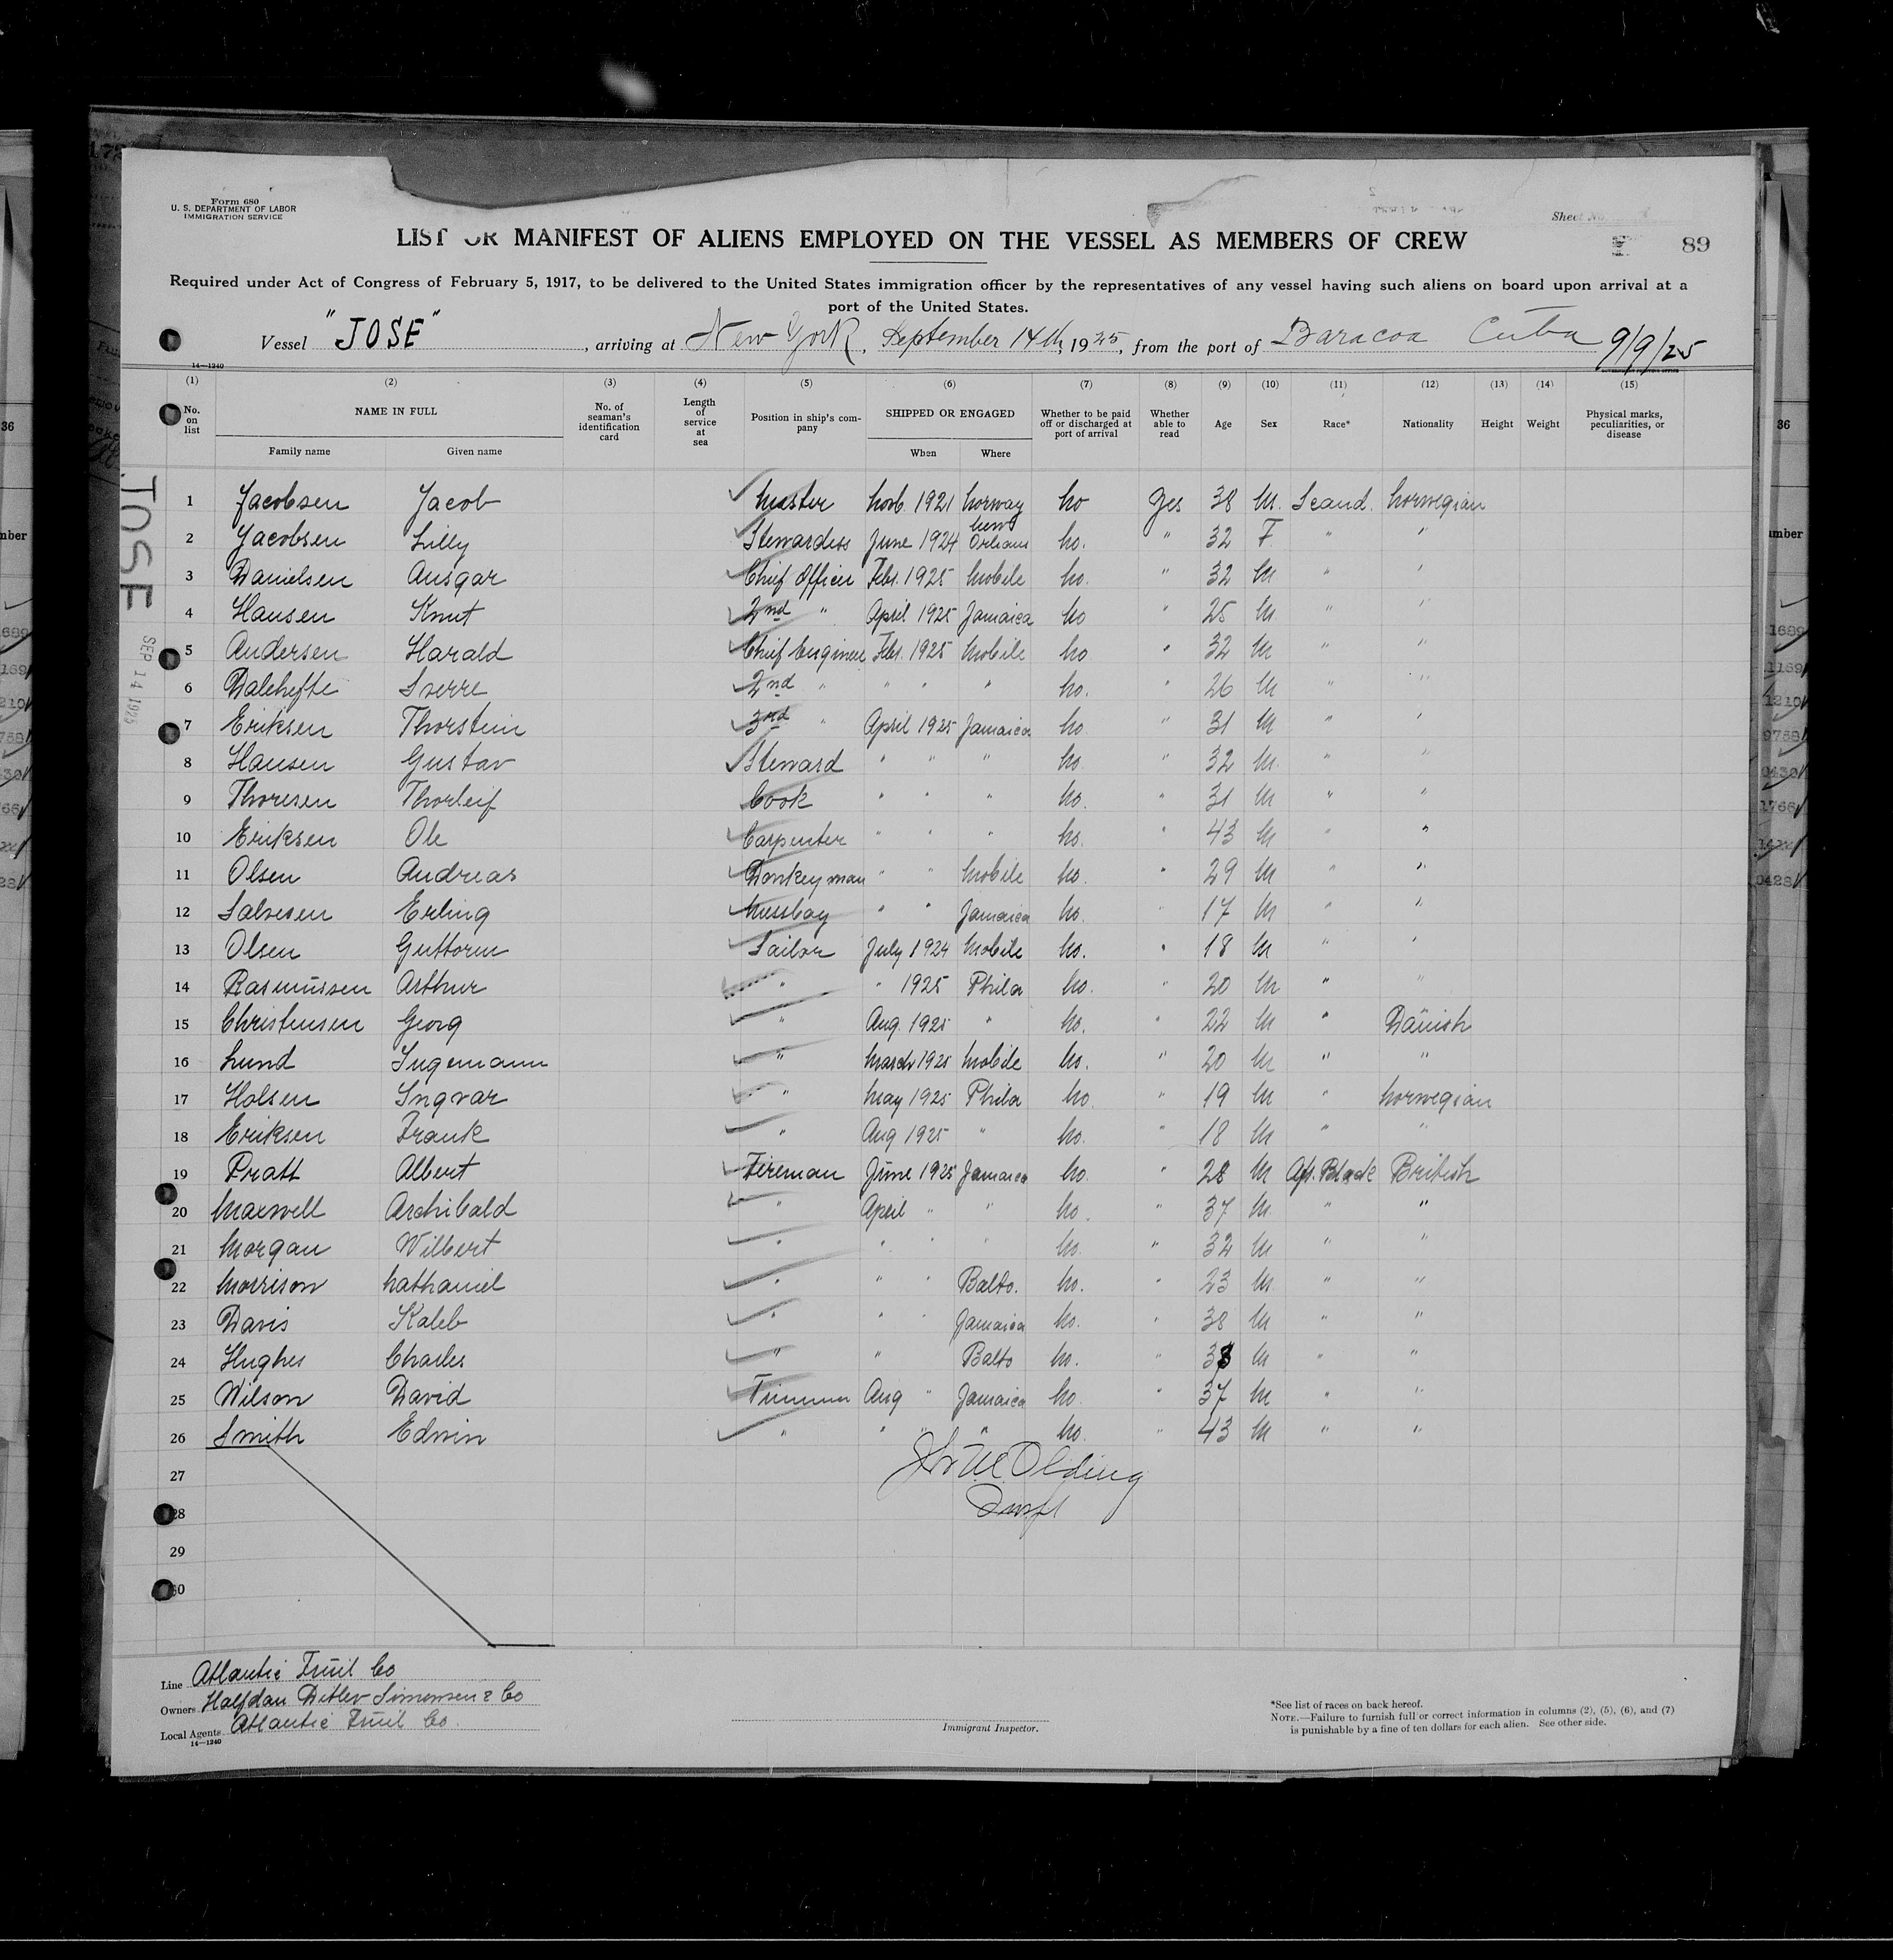 Form 680
U. S. DEPARTMENT OF LABOR
IMMIGRATION SERVICE
Sheet No.
89
LIST OR MANIFEST OF ALIENS EMPLOYED ON THE VESSEL AS MEMBERS OF CREW
Required under Act of Congress of February 5, 1917, to be delivered to the United States immigration officer by the representatives of any vessel having such aliens on board upon arrival at a
port of the United States.
Vessel "JOSE", arriving at New York, September 14th, 1925, from the port of Baracoa Cuba 9/9/25
14—1240
(1) (2) (3) (4) (5) (6) (7) (8) (9) (10) (11) (12) (13) (14) (15)
No. on list NAME IN FULL Family name Given name No. of seaman's identification card Length of service at sea Position in ship's company SHIPPED OR ENGAGED When Where Whether to be paid off or discharged at port of arrival Whether able to read Age Sex Race* Nationality Height Weight Physical marks, peculiarities, or disease
JOSE
SEP 14 1925
1 Jacobsen Jacob Master Novb. 1921 Norway No Yes 38 M. Scand. Norwegian
2 Jacobsen Lilly Stewardess June 1924 New Orleans No. " 32 F " "
3 Danielsen Ansgar Chief Officer Febr. 1925 Mobile No. " 32 M " "
4 Hansen Knut 2nd " April 1925 Jamaica No " 25 M. " "
5 Andersen Harald Chief Engineer Febr. 1925 Mobile No " 32 M " "
6 Dalehefte Sverre 2nd " " " " No. " 26 M " "
7 Eriksen Thorstein 3rd " April 1925 Jamaica No " 31 M " "
8 Hansen Gustav Steward " " " No " 32 M. " "
9 Thoresen Thorleif Cook " " " No. " 31 M " "
10 Eriksen Ole Carpenter " " " No. " 43 M " "
11 Olsen Andreas Donkeyman " " Mobile No. " 29 M " "
12 Salvesen Erling Messboy " " Jamaica No. " 17 M " "
13 Olsen Guttorm Sailor July 1924 Mobile No. " 18 M " "
14 Rasmussen Arthur " " 1925 Phila No. " 20 M " "
15 Christensen Georg " Aug. 1925 " No. " 22 M " Danish
16 Lund Ingemann " March 1925 Mobile No. " 20 M " "
17 Holsen Ingvar " May 1925 Phila No. " 19 M " Norwegian
18 Eriksen Frank " Aug 1925 " No. " 18 M " "
19 Pratt Albert Fireman June 1925 Jamaica No. " 28 M Afr. Black British
20 Maxwell Archibald " April " " No. " 37 M. " "
21 Morgan Wilbert " " " " No. " 32 M " "
22 Morrison Nathaniel " " " Balto. No. " 23 M. " "
23 Davis Kaleb " " " Jamaica No. " 38 M " "
24 Hughes Charles " " Balto No. " 38 M " "
25 Wilson David Trimmer Aug " Jamaica No. " 37 M " "
26 Smith Edwin " " " " No. " 43 M " "
27
28
29
30
Line Atlantic Fruit Co
Owners Halfdan Ditlev Simonsen & Co
Local Agents Atlantic Fruit Co.
14—1240
Immigrant Inspector.
*See list of races on back hereof.
NOTE.—Failure to furnish full or correct information in columns (2), (5), (6), and (7)
is punishable by a fine of ten dollars for each alien. See other side.